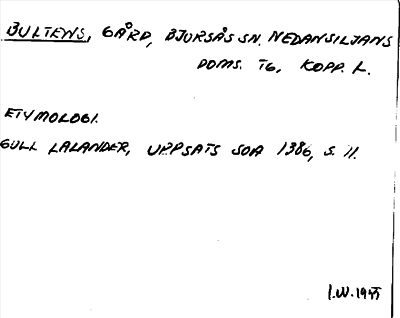 BULTENS, GÅRD, BJURSÅS SN. NEDANSILJANS
DOMS. TG, KOPP. L.
ETYMOLOGI.
GULL LALANDER, UPPSATS SOA 1386, S. 11.
I.W. 19